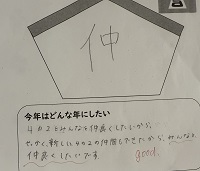 仲
今年はどんな年にしたい
4の2とみんなと仲良くしたいから。
せっかく新しい4の2の仲間もできたから、みんなと
仲良くしたいです。
good